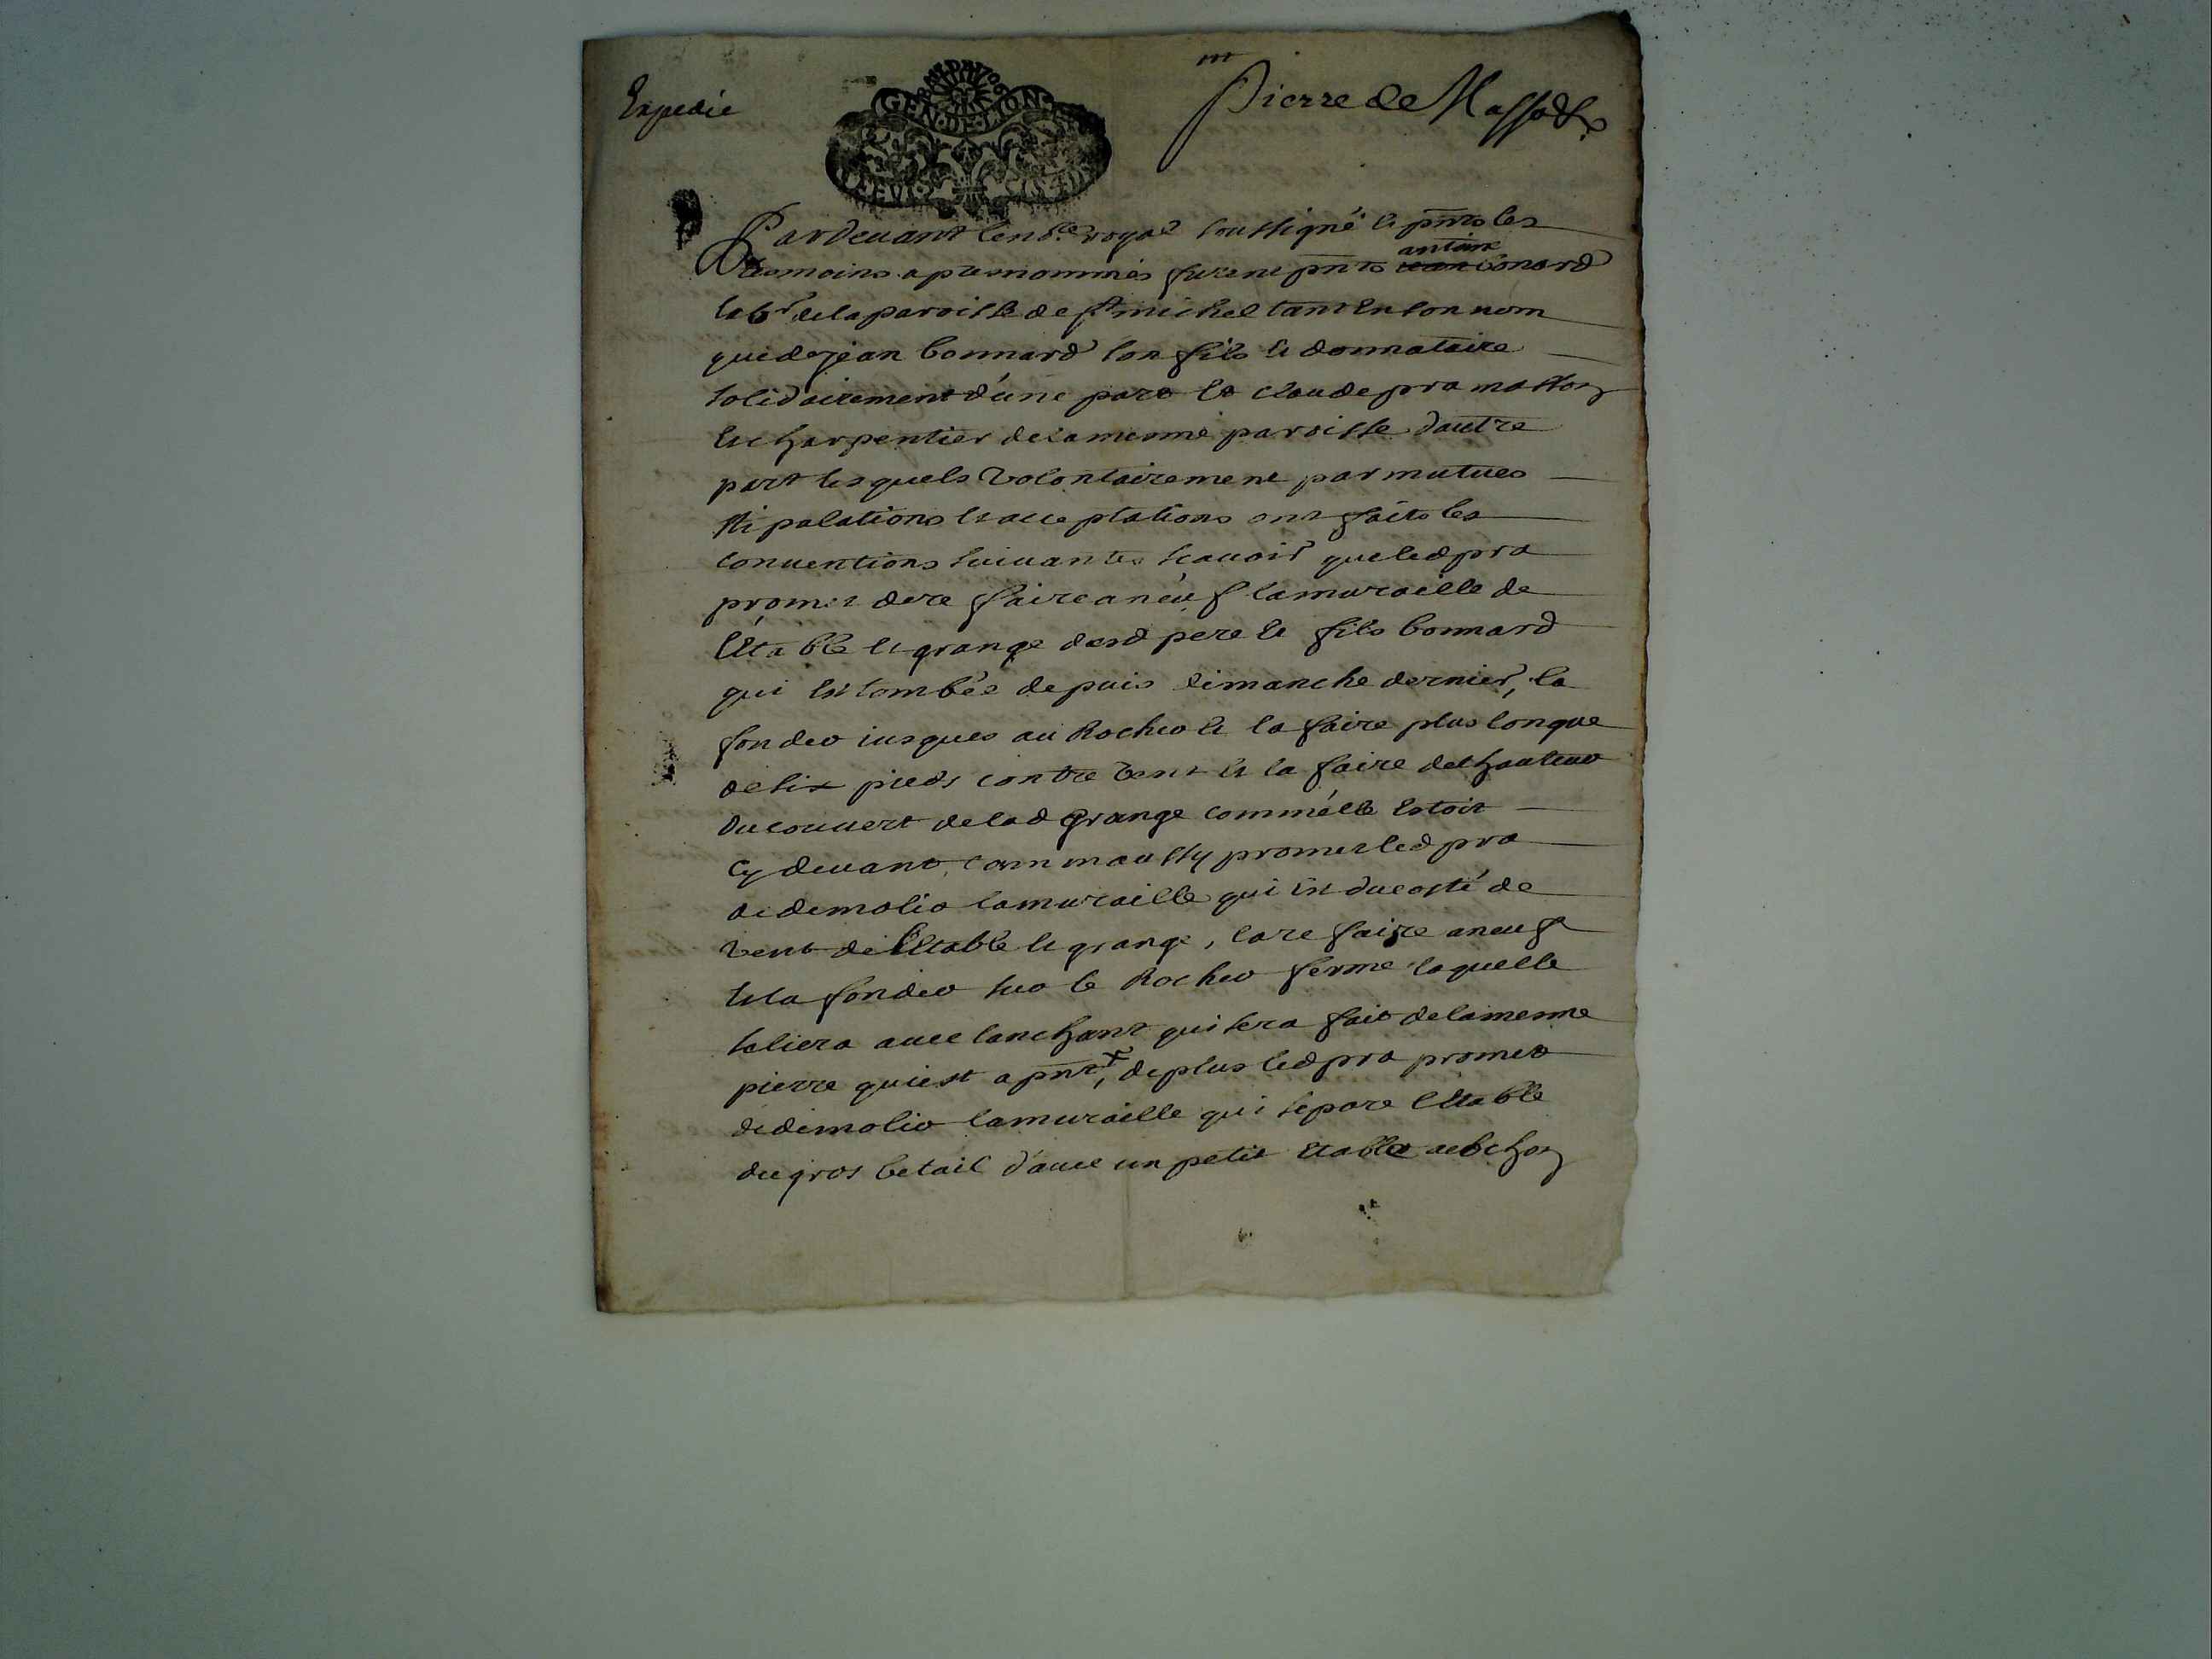 Expedié
GEN·DE·LION
m
Pierre de
Pardeuant le no.re royal soussigné et pnts les
tesmoins apres nommés furent pnts antoine bonard
lab.r de la paroisse de st michel tant en son nom
que de jean bonnard son fils et donnataire
solidairement d'une part et claude pra masson
et charpentier de la mesme paroisse d'autre
part lesquels volontairement par mutues
stipulations et acceptations ont faits les
conuentions suiuantes scauoir que led pra
promet de re faire a neuf la muraille de
l'étable et grange desd pere et fils bonnard
qui est tombée depuis dimanche dernier, la
fonder iusques au Rocher et la faire plus longue
de six pieds contre vent et la faire de hauteur
du couuert de lad grange comm'elle estoit
cy deuant, comm aussy promet led pra
de demolir la muraille qui est du costé de
vent de l'estable et grange, la re faire a neuf
et la fonder sur le Rocher ferme laquelle
se liera auec lanchant qui sera fait de la mesme
pierre qui est a pnt, de plus led pra promet
de demolir la muraille qui separe l'estable
du gros betail d'auec un petit estable